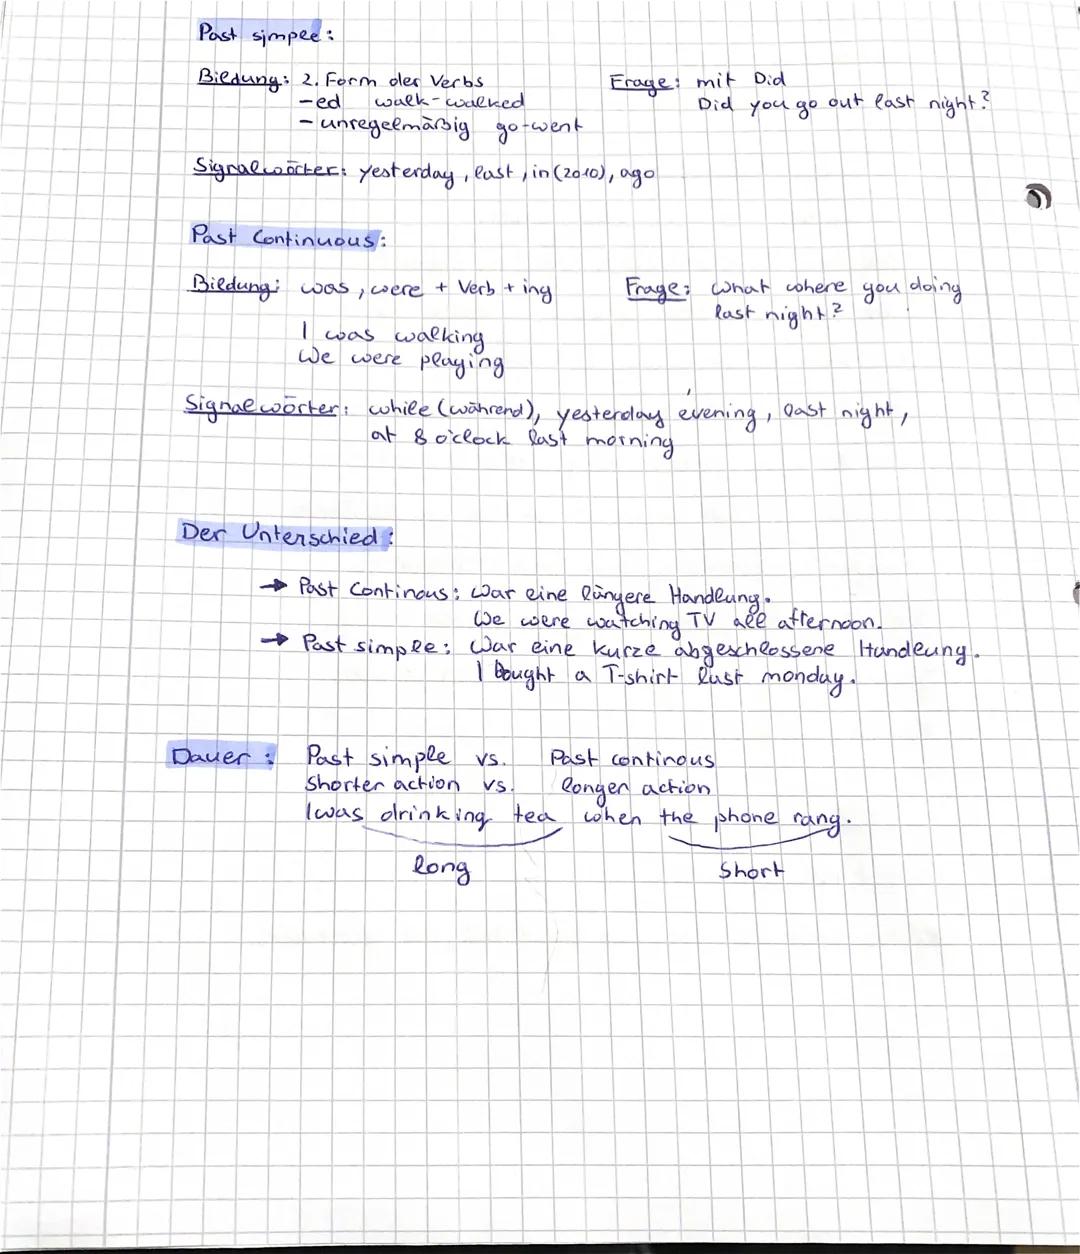 Past simple:
Bildung: 2. Form der Verbs Frage: mit Did
-ed walk-walked Did you go out last night?
- unregelmäßig go-went
Signalwörter: yesterday, last, in (2010), ago
Past Continuous:
Bildung: was, were + Verb + ing Frage: what where you doing
last night?
I was walking
We were playing
Signalwörter: while (während), yesterday evening, last night,
at 8 o'clock last morning
Der Unterschied:
→ Past Continous: War eine längere Handlung.
We were watching TV all afternoon.
→ Past simple: War eine kurze abgeschlossene Handlung.
I bought a T-shirt last monday.
Dauer: Past simple vs. Past continous
Shorter action vs. longer action
I was drinking tea when the phone rang.
long short